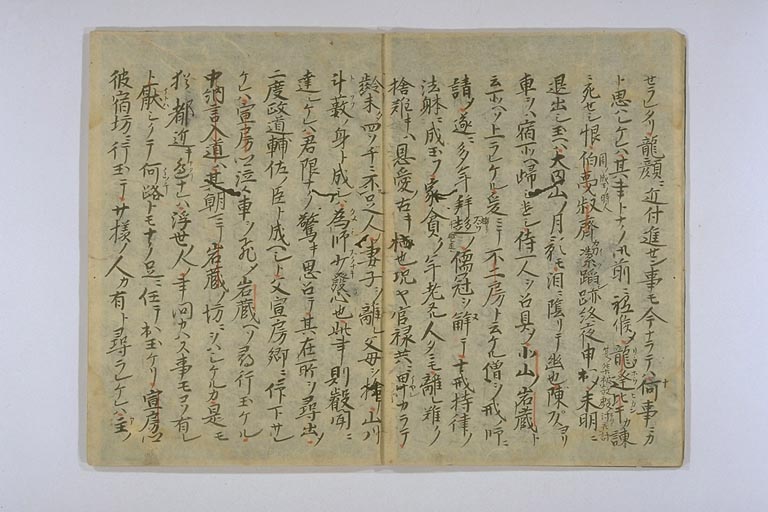 セラレケリ龍顔ニ近付進セン事モ今ナラテハ何事ニカ
ト思ハレケレハ其事トナク御前ニ祗候〆龍逢比干カ諫
ニ死セシ恨伯夷叔齊カ潔蹈跡終夜申出〆未明ニ
退出シ玉ヘハ大内山ノ月影モ泪ニ陰リテ幽也陳ヨリ
車ヲハ宿所ヘ歸シ遣シ侍一人ヲ召具〆北山岩蔵ト
云所ヘソ上ラレケル爰ニテ不二房ト云ケル僧ヲ戒ノ師ニ
請〆遂ニ多年拜趨ノ儒冠ヲ解テ十戒持律ノ
法躰ニ成玉フ家貧ク年老ヌル人タニモ離難ク
捨難キハ恩愛ノ古キ栖也況ヤ官禄共ニ卑カラテ
齢未タ四十ニ不足人ノ妻子ヲ離レ父母ヲ捨テ山川
斗藪ノ身ト成シハ為師少キ發心也此事則叡聞ニ
達シケレハ君限ナク驚キ思召テ其在所ヲ尋出シ
二度政道輔佐ノ臣ト成ヘシト父宣房卿ニ被仰下
ケレハ宣房卿泣々車ヲ飛〆岩蔵ヘソ尋行玉ケル
中納言入道ハ其朝マテ岩蔵ノ坊ニヲハシケルカ是モ
猶都近キ邊ナレハ浮世ノ人ノ事問カハス事モコソ有レ
ト厭ハシクテ何路トモナク足ニ任テ出玉ケリ宣房卿
彼宿坊ニ行玉テサ様ノ人カ有ト尋ラレケレハ主ノ